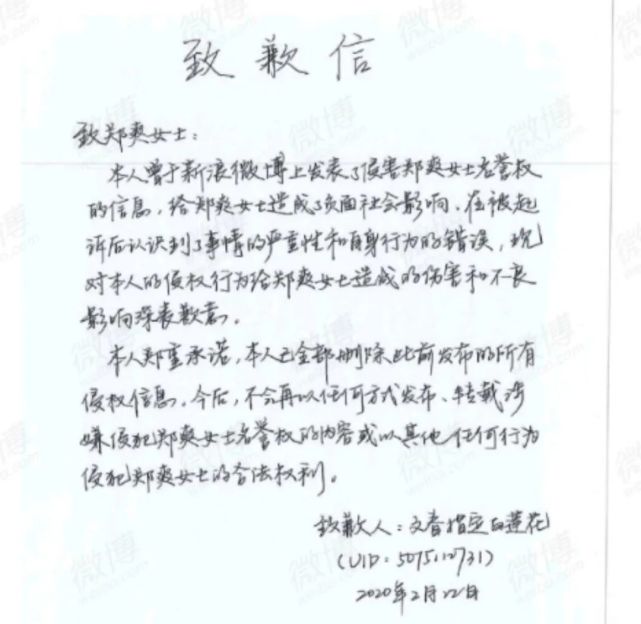 致歉信
致郑爽女士：
本人曾于新浪微博上发表了侵害郑爽女士名誉权
的信息，给郑爽女士造成了负面社会影响。在被起
诉后认识到了事情的严重性和自身行为的错误，现
对本人的侵权行为给郑爽女士造成的伤害和不良
影响深表歉意。
本人郑重承诺，本人已全部删除此前发布的所有
侵权信息。今后，不会再以任何方式发布、转载涉
嫌侵犯郑爽女士名誉权的内容或以其他任何行为
侵犯郑爽女士的合法权利。
致歉人：文春指定白莲花
(UID：5075112731)
2020年2月22日